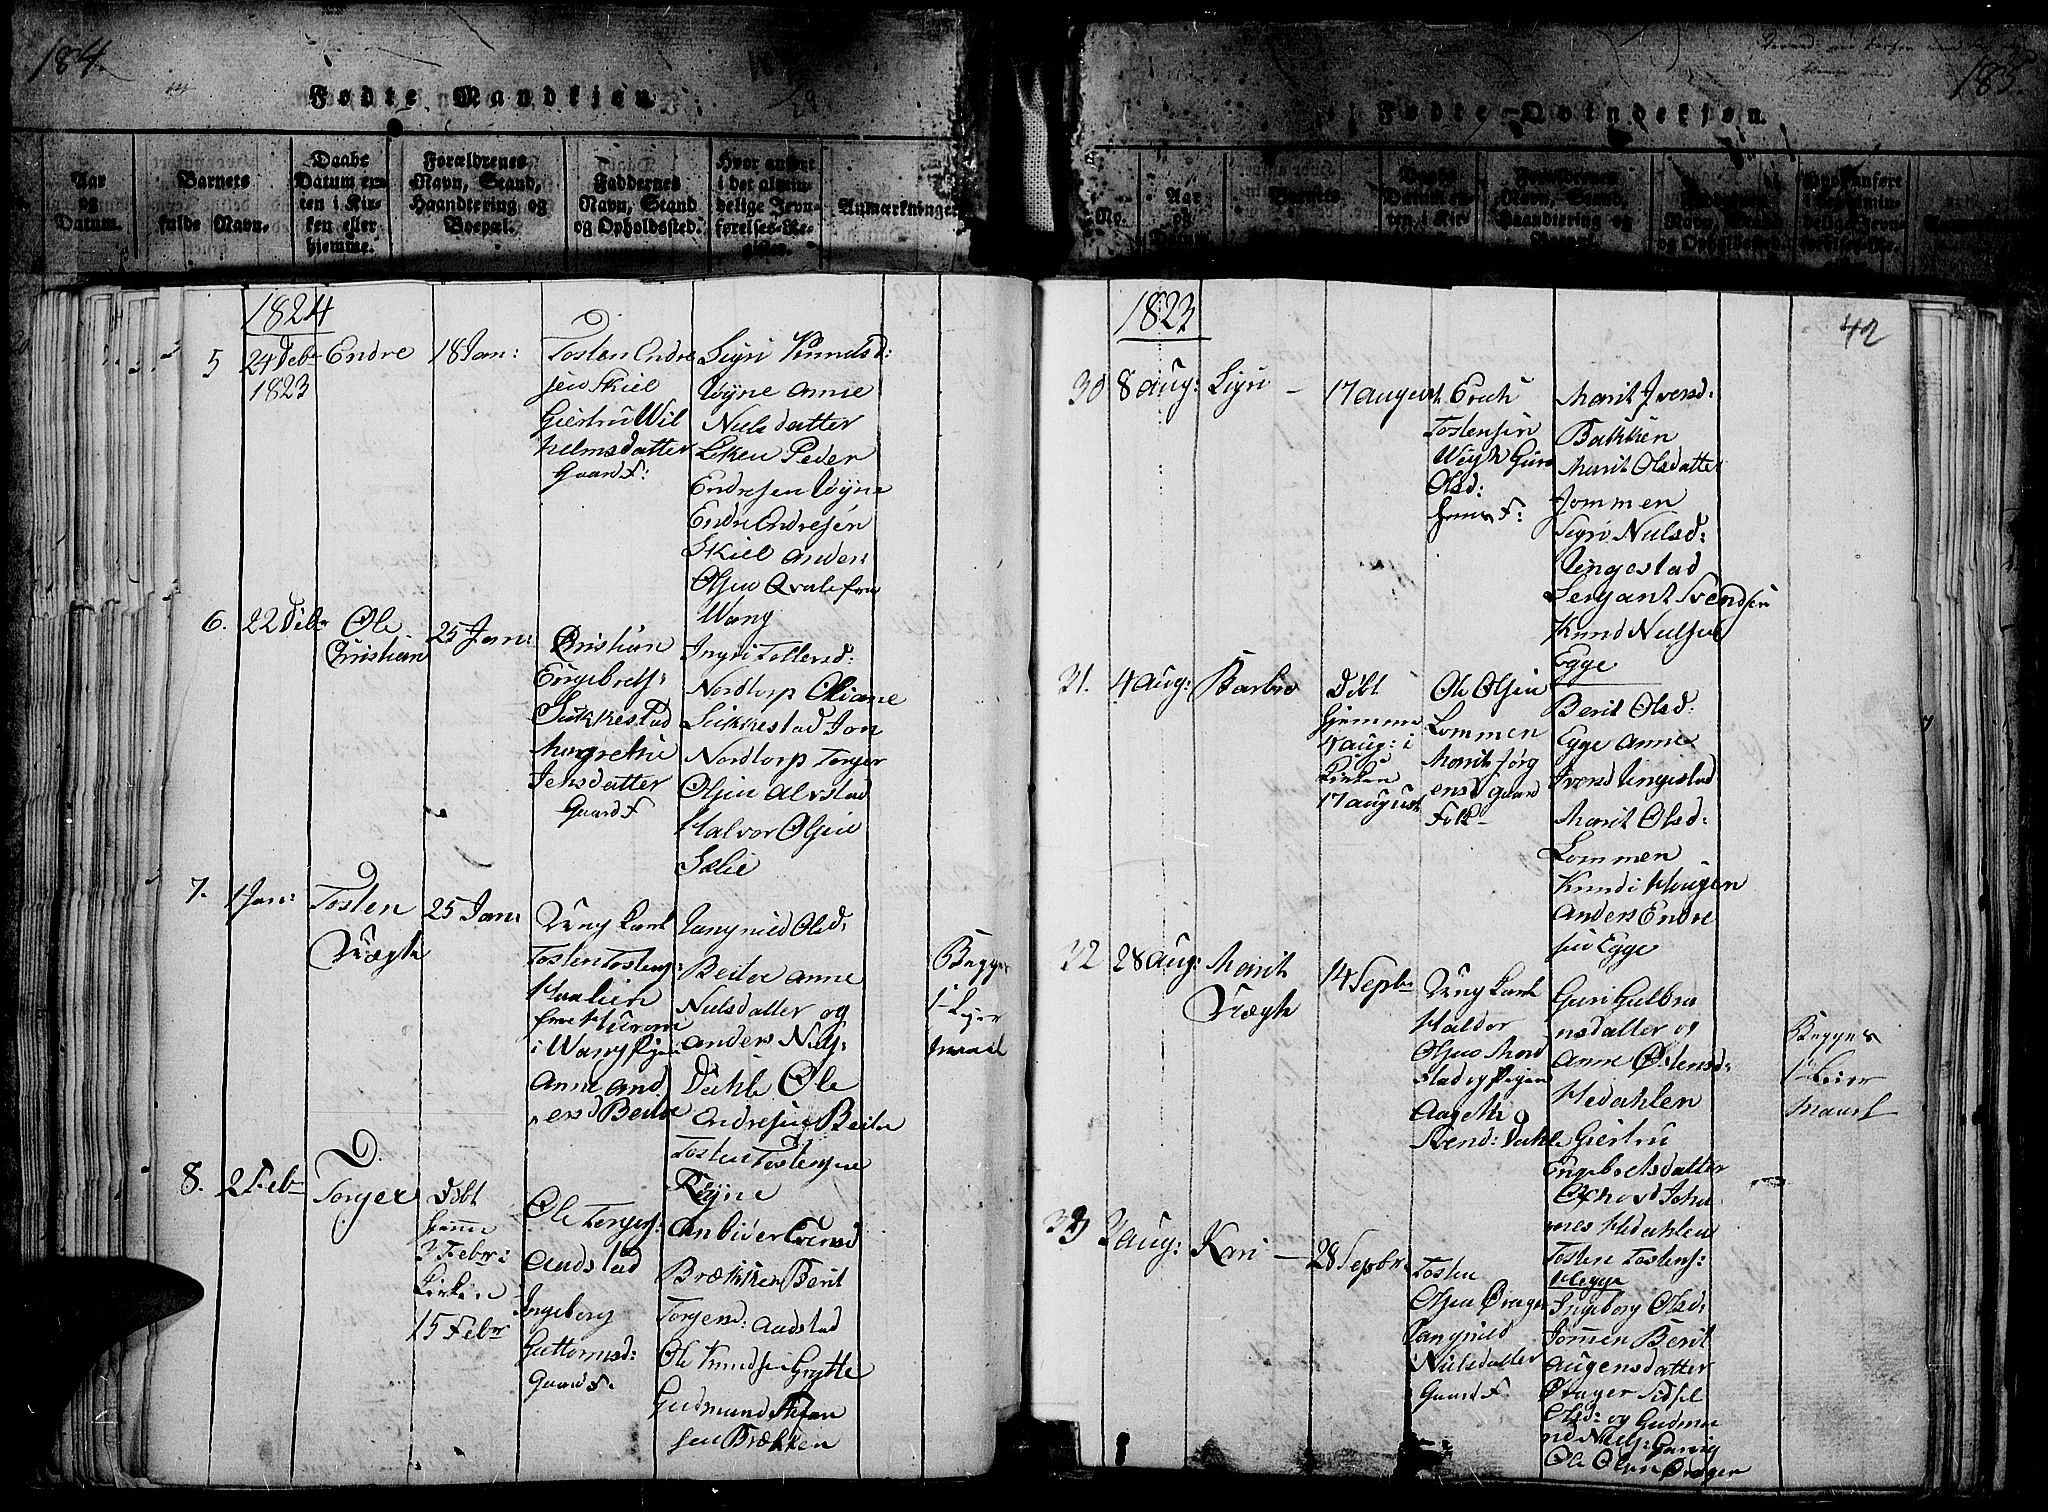 184.
Fødte Mandkjøn.
Aar
og
Datum.
Barnets
fulde Navn.
Daabs
Datum en-
ten i Kir-
ken eller
hjemme.
Forældrenes
Navn, Stand,
Haandtering og
Boepæl.
Faddernes
Navn, Stand
og Opholdssted.
Hvor anført
i det almin-
delige Jevn-
førelses-Re-
Anmærkninger
1824
5
24 Debr
1823
Endre
18 Jan:
Tosten Endre
sen Skiel
Giertru Wil
helmsdatter
Gaard F:
Sigri Knudsd:
Løyne Anne
Nilsdatter
Løken Peder
Endresen Løyne
Endre Endresen
Skiel Anders
Olsen Qvale fra
Wang
6.
22 Debr
Ole
Christian
25 Jan:
Christian
Engebrets:
Sukkestad
Margrethe
Jensdatter
Gaard F
Ingri Tollefsd:
Nordtorp Oliane
Sukkestad Jon
Nordtorp Torger
Olsen Alvstad
Halvor Olsen
Sælie
7.
1 Jan:
Tosten
Uægte
25 Jan:
Ung Karl
Tosten Tostens:
Haalien
fra Hurom
i Wang Pigen
Anne And
ersd Beitoe
Rangnild Olsd:
Beitoe Anne
Nilsdatter og
Anders Nils:
Dahle Ole
Andresen Beitoe
Tosten Tostensen
Røyne
Begges
1ste Lejer
maal
8.
2 Febr
Torger
Døbt
hjemme
3 Febr:
Kirken
15 Febr
Ole Torgers:
Audstad
Ingeborg
Guttormsd:
Gaard F.
Anbiør Evensd
Brækken Berit
Torgersd: Audstad
Ole Knudsen Grytte
Gudmund Stefan
sen Brækken
185.
Fødte Qvindekjøn.
No.
Aar
og
Datum
Barnets
Daabs
Datum en-
ten i Kir-
Forældrenes
Navn, Stand,
Haandtering og
Boepæl.
Navn, Stand
og Opholdssted.
Hvor anført
i det almin-
delige Jevn-
42
1823
30
8 Aug:
Sigri –
17 August
Erich
Tostensen
Guro
Olsd:
F:
Marit Iversd:
Bakken
Marit Olsdatter
Jommen
Sigri Nilsd:
Ungestad
Sergant Svendsen
Knud Nielsen
Egge
31.
4 Aug:
Barbro
Døbt
hjemme
4 Aug: i
Kirken
17 August
Ole Olsen
Lommen
Marit Jørg
ensd Gaard
Folk
Berit Olsd:
Egge Anne
Iversd Ungestad
Marit Olsd:
Lommen
Knud i Haugen
Anders Endre
sen Egge
32
28 Aug:
Marit
Uægte
14 Septbr
Ung Karl
Haldor
Olsen Mord
stad og Pigen
Aagethe
Svend: Dahle
Guri Gulbra
nsdatter og
Anne Østensd:
Hedahlen
Giertru
Engebretsdatter
Johan
nes Hedahlen
Tosten Tostens:
Hegge
Begges
1ste Leier
maal
33
3 Aug:
Kari –
28 Septbr.
Tosten
Olsen Drager
Rangnild
Nielsdatter
Gaard F
Ingeborg Olsd:
Jommen Berit
Augensdatter
Sidsel
Olsd: og Gudmu
nd Niels: Garvig
Ole Olsen Drager